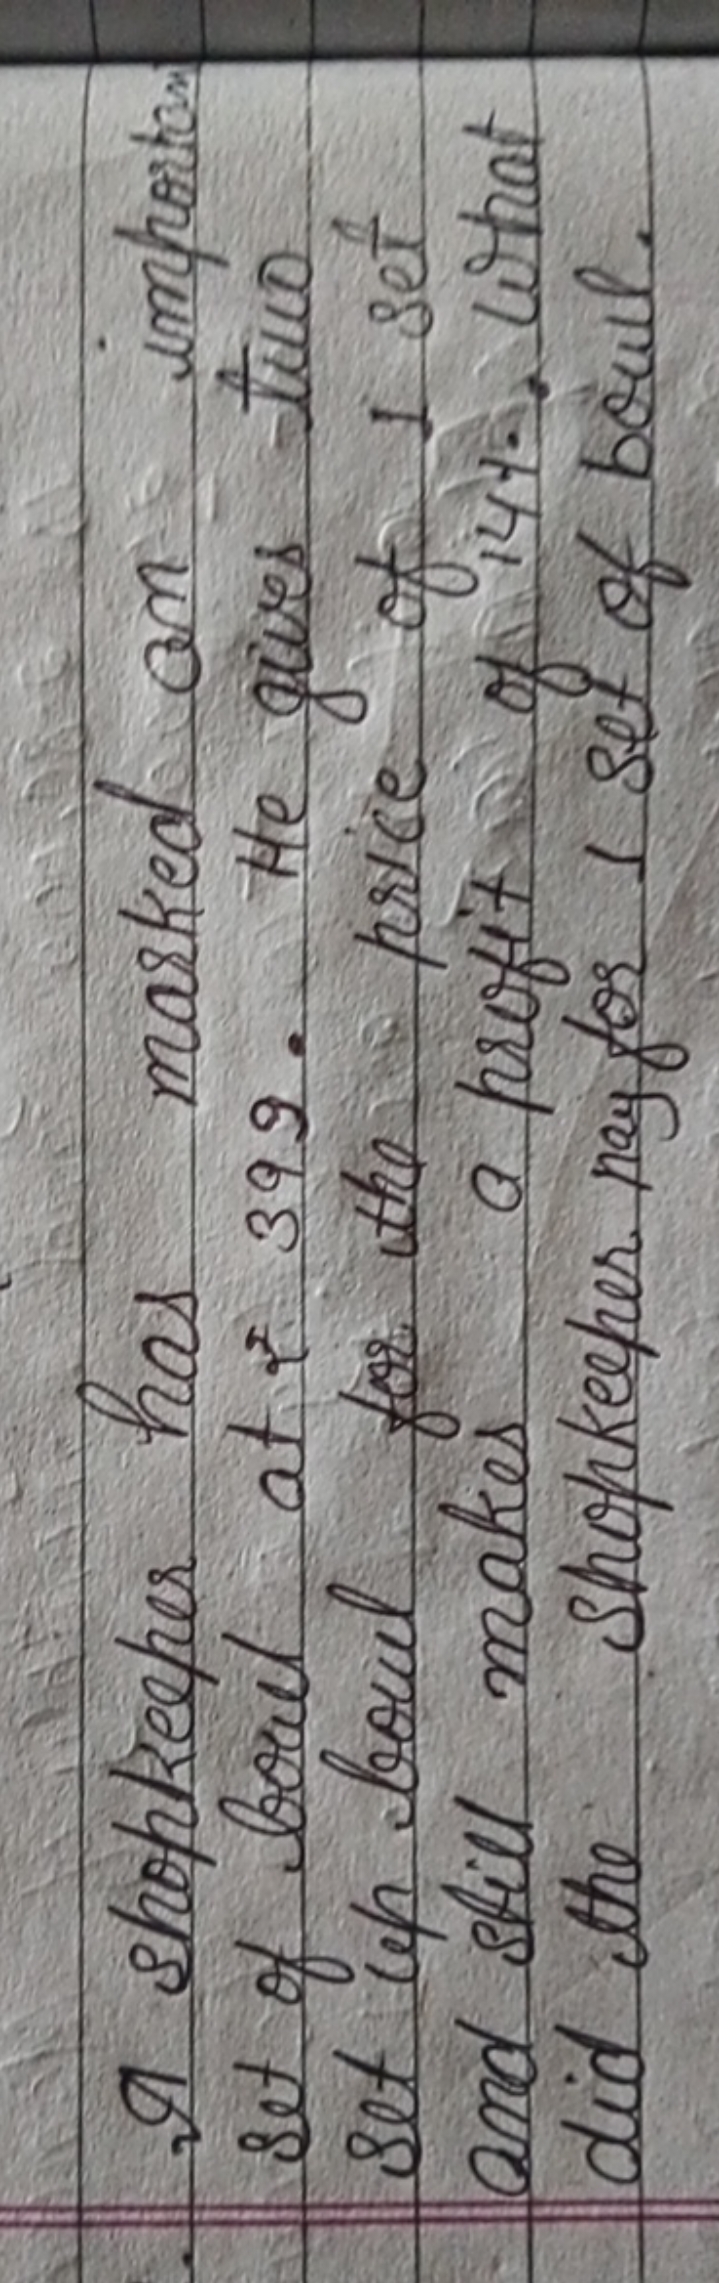 A shopkeeper has marked an importan
set of bowl at ₹ 399. He gives two
set up bowl for the price of 1 set
and still makes a profit of 14%. What
did the shopkeeper pay for 1 set of bowl.